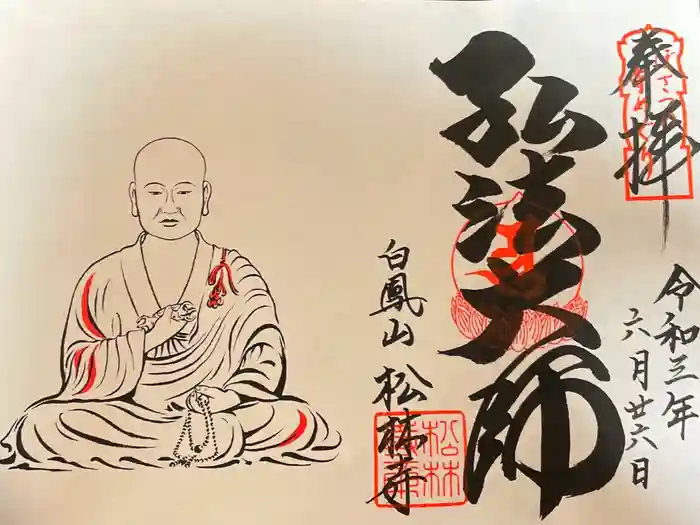 奉拝
令和三年
六月廿六日
弘法大師
白鳳山 松林寺